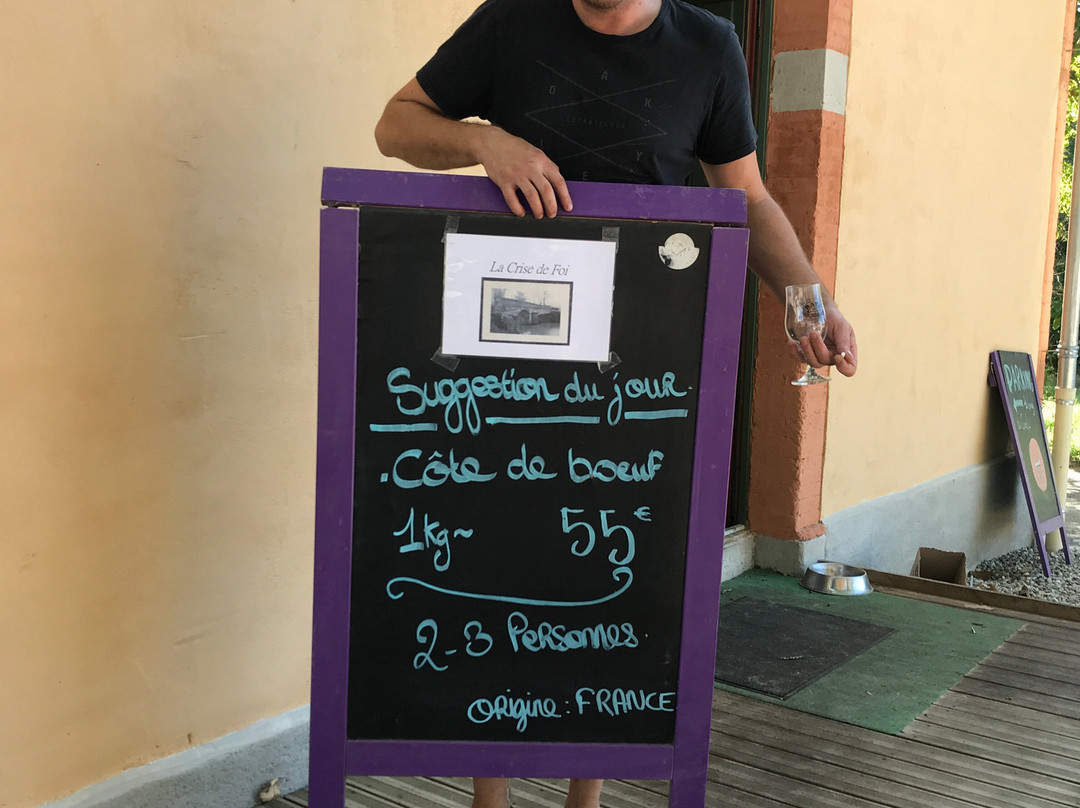 OAKLEY
La Crise de Foi
Suggestion du jour.
.Côte de boeuf
1kg~ 55€
2-3 Personnes.
origine : FRANCE